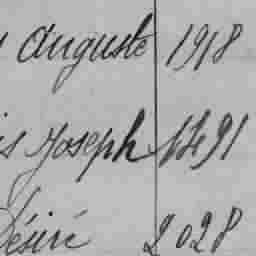 Auguste 1918
Joseph 1491
Désiré 2028